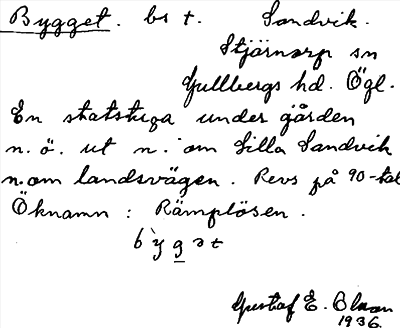 Bygget. bs t. Sandvik.
Stjärnorp sn
Gullbergs hd. Ögl.
En statstuga under gården
n. ö. ut n. om Lilla Sandvik
n. om landsvägen. Revs på 90-tal
Öknamn : Rämplösen.
b`yg̲ət
Gustaf E. Olson
1936.